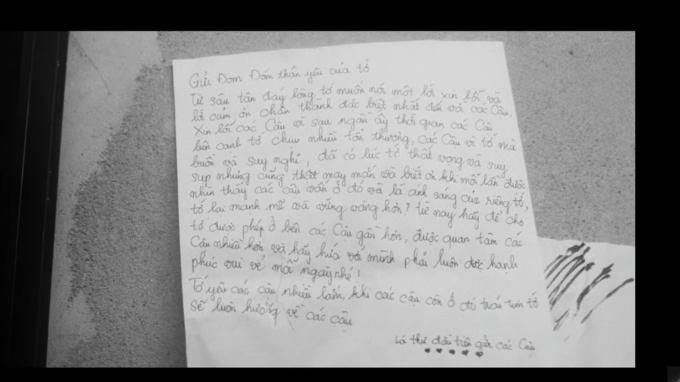 Gửi Đom Đóm thân yêu của tớ
Từ sâu tận đáy lòng tớ muốn nói một lời xin lỗi và
lời cảm ơn chân thành đặc biệt nhất đến với các Cậu.
Xin lỗi các Cậu vì sau ngần ấy thời gian các Cậu
bên cạnh tớ chịu nhiều tổn thương, các Cậu vì tớ mà
buồn và suy nghĩ, đã có lúc tớ thất vọng và suy
sụp nhưng cũng thật may mắn và biết ơn khi mỗi lần được
nhìn thấy các cậu vẫn ở đó và là ánh sáng của riêng tớ,
tớ lại mạnh mẽ và vững vàng hơn? Từ nay hãy để cho
tớ được phép ở bên các Cậu gần hơn, được quan tâm các
Cậu nhiều hơn và hãy hứa với mình phải luôn được hạnh
phúc vui vẻ mỗi ngày nhé!
Tớ yêu các cậu nhiều lắm, khi các cậu còn ở đó trái tim tớ
sẽ luôn hướng về các cậu
Lá thư đầu tiên gửi các Cậu